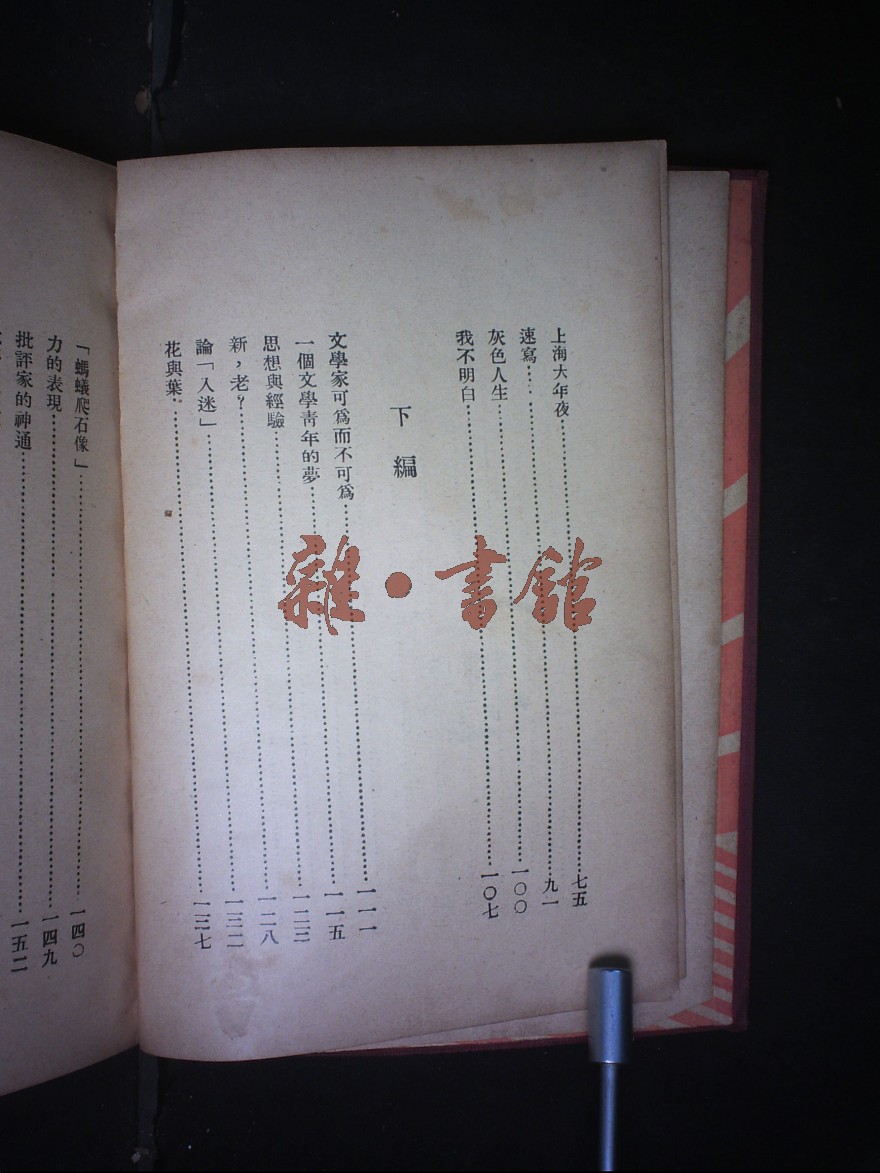 上海大年夜……七五
速寫……九一
灰色人生……一〇〇
我不明白……一〇七
下編
文學家可爲而不可爲……一一一
一個文學青年的夢……一一五
思想與經驗……一二三
新，老？……一二八
論「入迷」……一三二
花與葉……一三七
「螞蟻爬石像」……一四〇
力的表現……一四九
批評家的神通……一五二
雜·書館